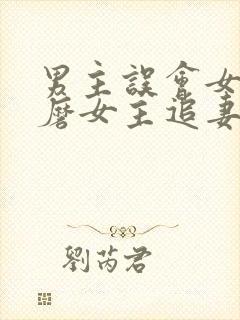 男主誤會女
磨女主追妻
劉芮君